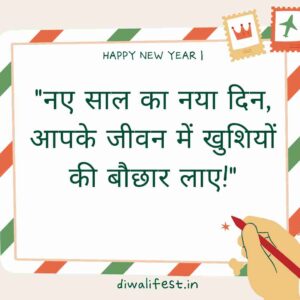 HAPPY NEW YEAR |
"नए साल का नया दिन,
आपके जीवन में खुशियों
की बौछार लाए!"
diwalifest.in